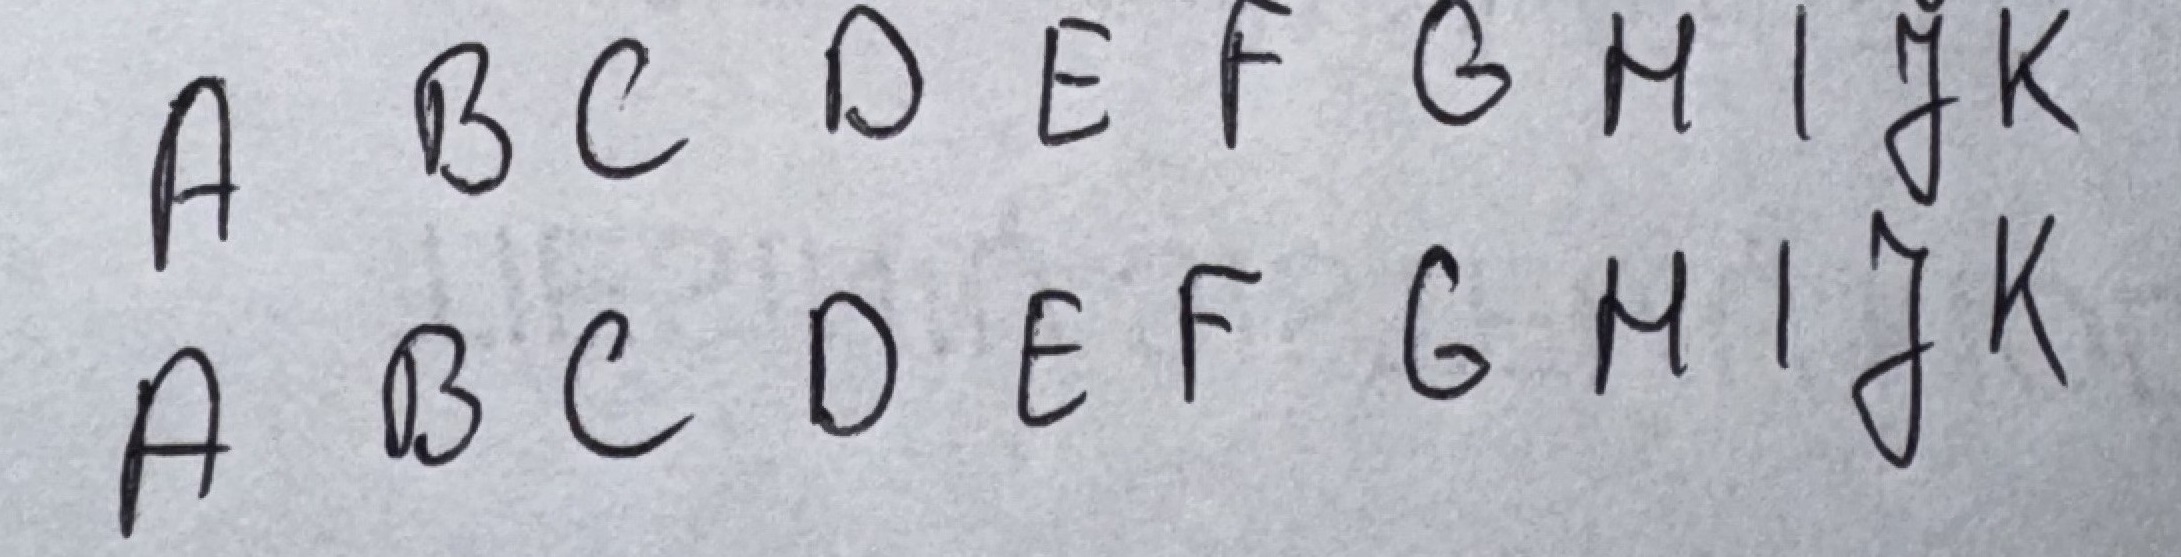 A B C D E F G H I J K
A B C D E F G H I J K